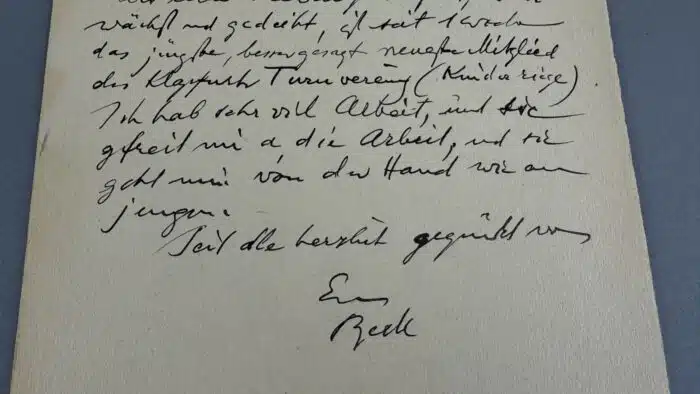 wächst und gedeiht, ist seit 1 Woche
das jüngste, besser gesagt neueste Mitglied
des Klagfurth Turnvereins (Kinderriege).
Ich hab sehr viel Arbeit, und sie
gefreit mi a die Arbeit, und sie
geht mir von der Hand wie am
jungen.
Seit alle herzlich gegrüßt von